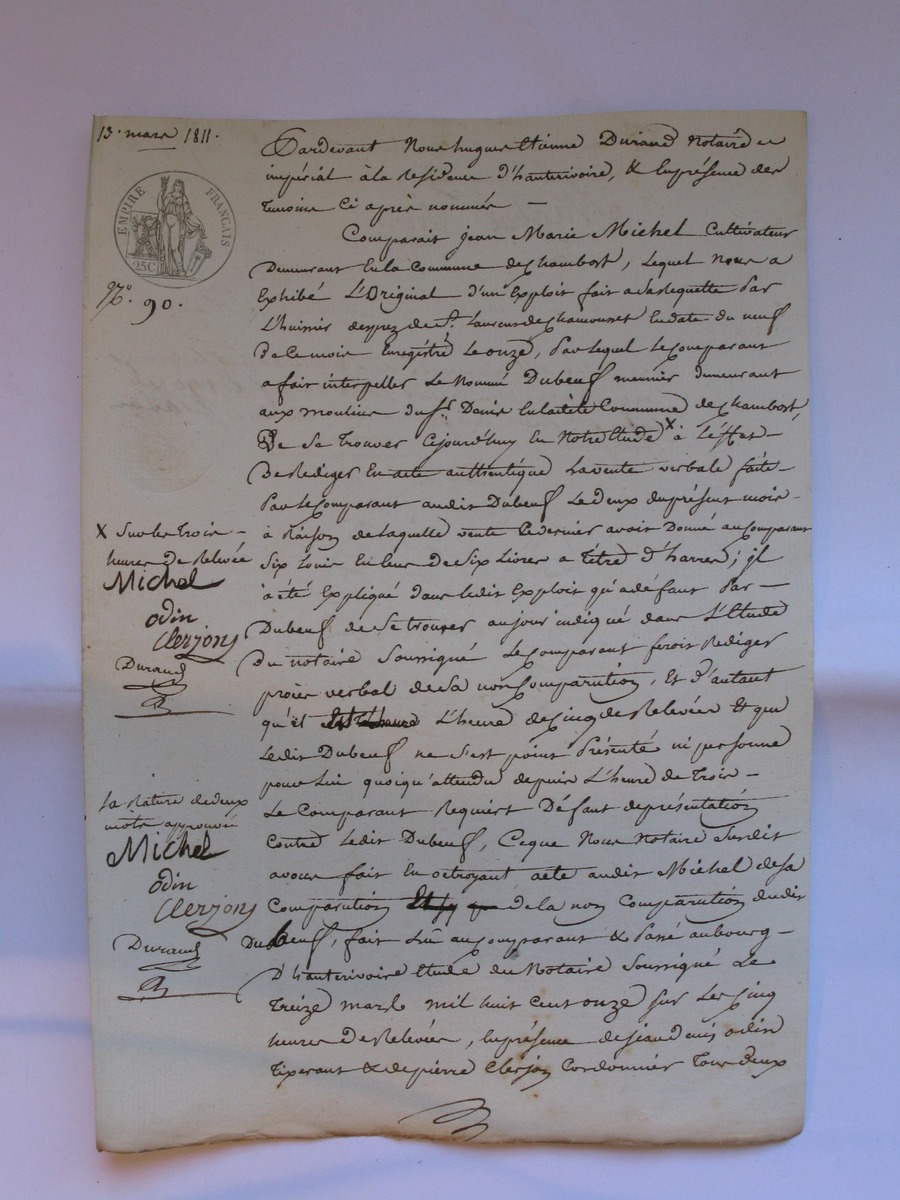 13. mars 1811.
EMPIRE FRANÇAIS
25C
N.o 90.
Pardevant Nous hugues Etienne Durand Notaire
impérial à la Residence d'hauterivoire, & Enprésence des
Temoins Ci après nommés —
Comparait jean Marie Michel Cultivateur
Demeurant En la Commune de Chambost, Lequel nous a
Exhibé L'Original d'un Exploit fait a Sa Requette Par
L'huissier desprez de St. Laurens de Chamousset En date du neuf
de ce mois Enregistré Le onze, Par Lequel Le Comparant
a fait interpeller Le Nommé Dubeuf meunier demeurant
aux moulins du Sr. Danis En la dite Commune de Chambost,
De Se Trouver Cejourd'huy En Notre Etude X à L'effet —
De Rediger En acte authentique La vente verbale faite —
Par Le Comparant audit Dubeuf Le deux du présent mois —
à Raison de Laquelle vente Ce dernier avait Donné au Comparant
Six Louis En Ecus de Six Livres a Titre d'harres ; il
a été Expliqué dans Ledit Exploit qu'a défaut Par —
Dubeuf de Se trouver au jour indiqué dans L'Etude
Du notaire Soussigné Le Comparant feroit Rediger
procès verbal de Sa non Comparution, Et D'autant
qu'il Est L'heure L'heure de Cinq de Relevées Et que
Ledit Dubeuf ne S'est point Présenté ni personne
pour Lui quoiqu'attendu depuis L'heure de Trois —
Le Comparant Requiert Défaut de présentation
Contre Ledit Dubeuf, Ce que Nous Notaire Susdit
avons fait En octroyant acte audit Michel de Sa
Comparution de la non Comparution dudit
Dubeuf, fait Lu au Comparant & Passé au bourg —
D'hauterivoire Etude du Notaire Soussigné Le
Treize mars mil huit Cent onze Sur Les Cinq
heures De Relevées, En présence de jean denis odin
Tixerant & de pierre Clerjon Cordonnier Tous deux
X Sur les Trois —
heures De Relevée
Michel
odin
Clerjon
Durand
La Rature de deux
mots approuvée
Michel
odin
Clerjon
Durand